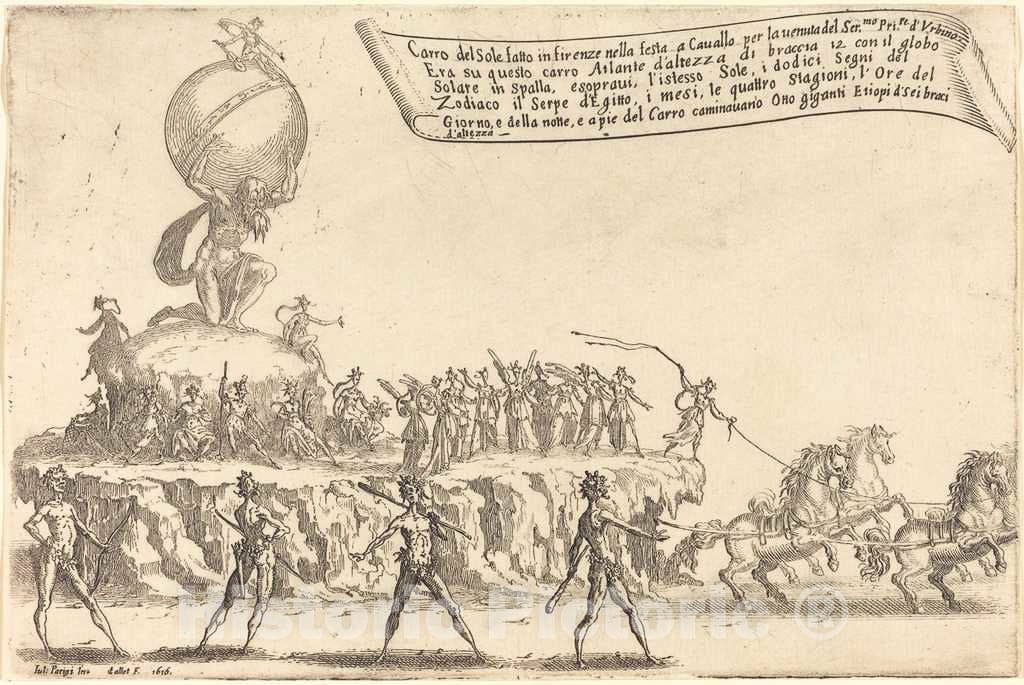 Carro del Sole fatto in firenze nella festa a Cauallo per la uenuta del Ser.mo Pri.pe d'Vrbino
Era su questo carro Atlante d'altezza di braccia 12 con il globo
Solare in spalla, esopravi, l'istesso Sole, i dodici Segni del
Zodiaco il Serpe d'Egitto, i mesi, le quattro Stagioni, l'Ore del
Giorno, e della notte, e a pie del Carro caminauano Otto giganti Etiopi di Sei braci
d'altezza
Iuli Parigi In. Callot F. 1616.
Historic Pictoric ®